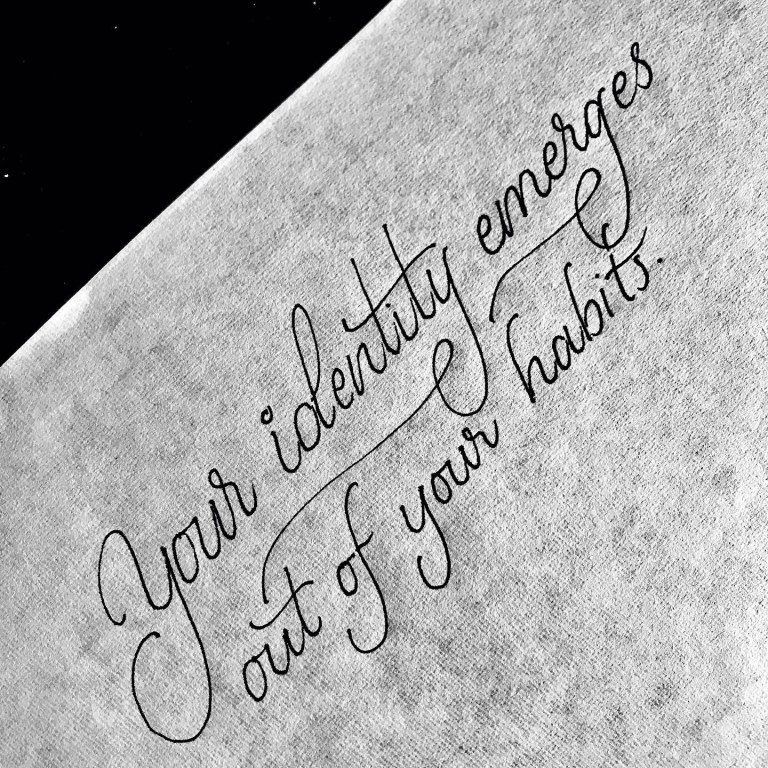 Your identity emerges
out of your habits.